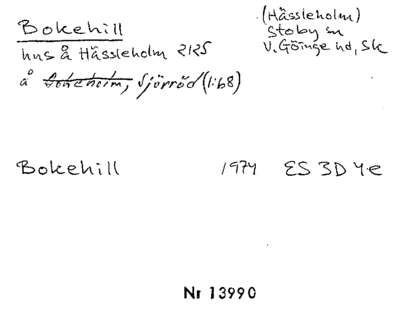 Bokehill
(Hässleholm)
Stoby sn
V. Göinge hd, Sk
hus å Hässleholm 2125
å Sjörröd (1:68)
Bokehill 1974 ES 3D 4e
Nr 13990